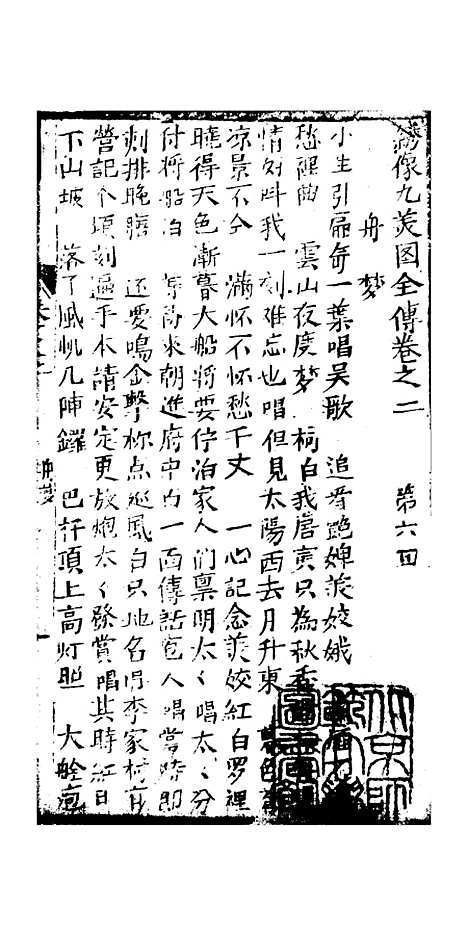 繡像九美图全傳卷之二　第六回
舟夢
小生引扁舟一葉唱吴歌　追尋艷婢羡姣娥
愁醒曲　雲山夜度夢　白我唐寅只為秋香
情　我一刻难忘也唱但見太陽西去月升東　暮色
凉景不分　滿怀不怀愁千丈　一心記念羡姣紅白罗裡
曉得天色漸暮大船將要停泊家人们禀明太々唱太々分
付將船泊　等待來朝進府中白一面傳話　人唱當時即
刻排晚膳　还要鳴金擊柝点巡風白只地名唤李家村有
營記个頃刻逓手本請安定更放炮太々發賞唱其時紅日
下山坡　落了风帆几陣鑼　巴杆頂上高灯照　大艙